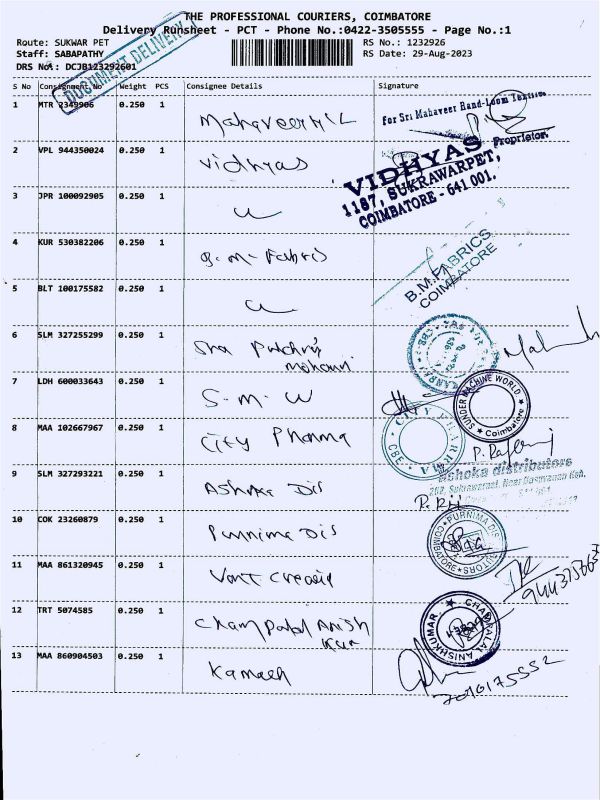 THE PROFESSIONAL COURIERS, COIMBATORE
Delivery Runsheet - PCT - Phone No.:0422-3505555 - Page No.:1
Route: SUKWAR PET
RS No.: 1232926
Staff: SABAPATHY
RS Date: 29-Aug-2023
DRS No.: DCJB123292601
DOCUMENT DELIVERY
S No Consignment No Weight PCS Consignee Details Signature
1 MTR 2349906 0.250 1
for Sri Mahaveer Hand-Loom Textiles
Proprietor.
2 VPL 944350024 0.250 1 Vidhyas
VIDHYAS
1187, SUKRAWARPET,
COIMBATORE - 641 001.
3 JPR 100092905 0.250 1
4 KUR 530382206 0.250 1 B.M. Fabris
B.M. FABRICS
COIMBATORE
5 BLT 100175582 0.250 1
6 SLM 327255299 0.250 1
7 LDH 600033643 0.250 1 S.M.W
SUNDER MACHINE WORLD
Coimbatore
8 MAA 102667967 0.250 1 City Pharma
CITY PHARMA
CBE
9 SLM 327293221 0.250 1 Ashoka Dis
Ashoka distributors
10 COK 23260879 0.250 1 Purnima Dis
PURNIMA DISTRIBUTORS
COIMBATORE
11 MAA 861320945 0.250 1
12 TRT 5074585 0.250 1 Champalal Anish
Kur
CHAMPALAL ANISHKUMAR
13 MAA 860904503 0.250 1 Kamlesh